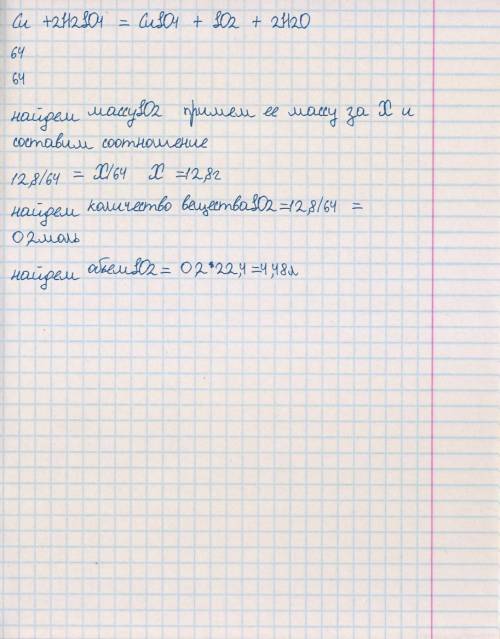 Cu + 2H2SO4 = CuSO4 + SO2 + 2H2O
64
64
найдем массу SO2 примем ее массу за X и
составим соотношение
12,8/64 = X/64 X = 12,8г
найдем количество вещества SO2 = 12,8/64 =
0 2 моль
найдем объем SO2 = 0 2*22,4 = 4,48л